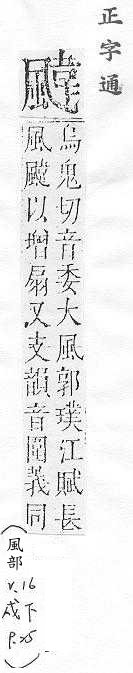 正字通
颹
烏鬼切音委大風郭璞江賦長
風颹以增扇又支韻音圍義同
(風部
v.16
戌下
P.25)